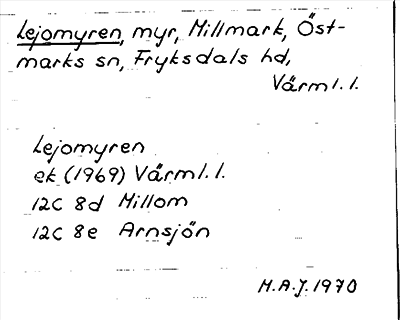 Lejomyren, myr, Millmark, Öst-
marks sn, Fryksdals hd,
Värml. l.
Lejomyren
ek (1969) Värml. l.
12C 8d Millom
12C 8e Arnsjön
M.A.J. 1970